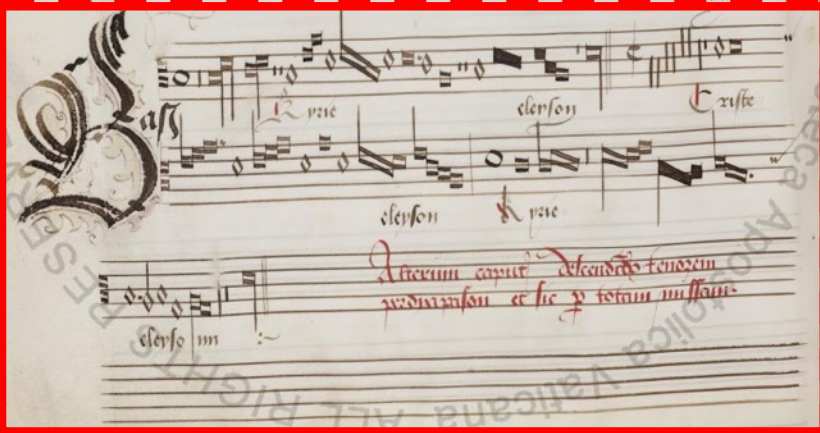 Bass
Kyrie eleyson Criste
eleyson Kyrie
Alterum caput descendendo tenorem
per dyapason et sic per totam missam
eleyson
Apostolica Vaticana ALL RIGHTS RESERV